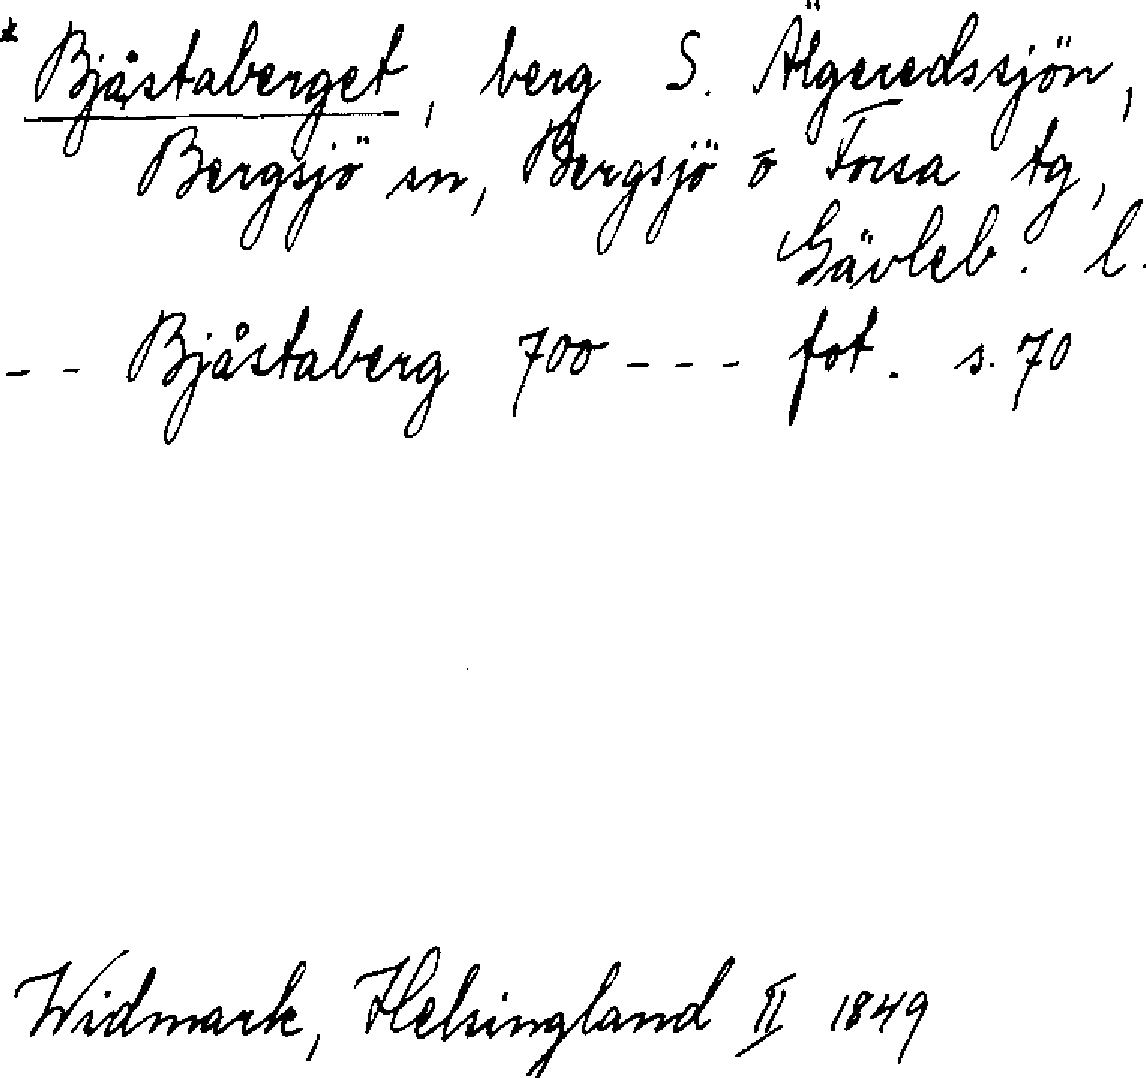 * Bjåstaberget, berg S. Älgeredssjön,
Bergsjö sn, Bergsjö o Forsa tg,
Gävleb. l.
- - Bjåstaberg 700 - - - fot. s. 70
Widmark, Helsingland II 1849